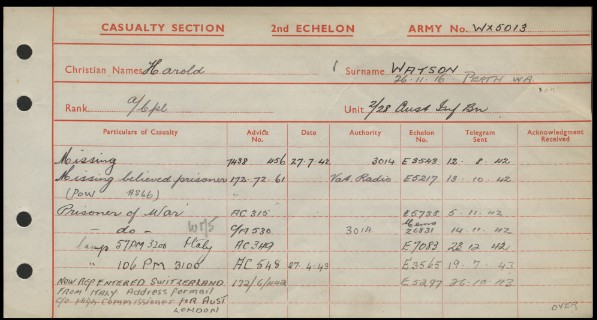 CASUALTY SECTION 2nd ECHELON ARMY No. WX5013
Christian Names Harold Surname WATSON
26-11-16 PERTH W.A.
Rank a/Cpl Unit 2/28 Aust Inf Bn
Particulars of Casualty Advice No. Date Authority Echelon No. Telegram Sent Acknowledgment Received
Missing 7438 456 27-7-42 3014 E3543 12-8-42
Missing believed prisoner 172-72-61 Vat. Radio E5217 13-10-42
(POW #866)
Prisoner of War AC 315 E5755 5-11-42
- do - W/S C/A 530 3014 Memo 20831 14-11-42
Camp 57 PM 3200 Italy AC 349 E7083 22 12 42
" 106 PM 3100 AC 548 27-4-43 E3565 19-7-43
NOW REP ENTERED SWITZERLAND 172/6/442 E5297 25-10-43
FROM ITALY Address for mail
C/o High Commissioner for AUST
LONDON
OVER